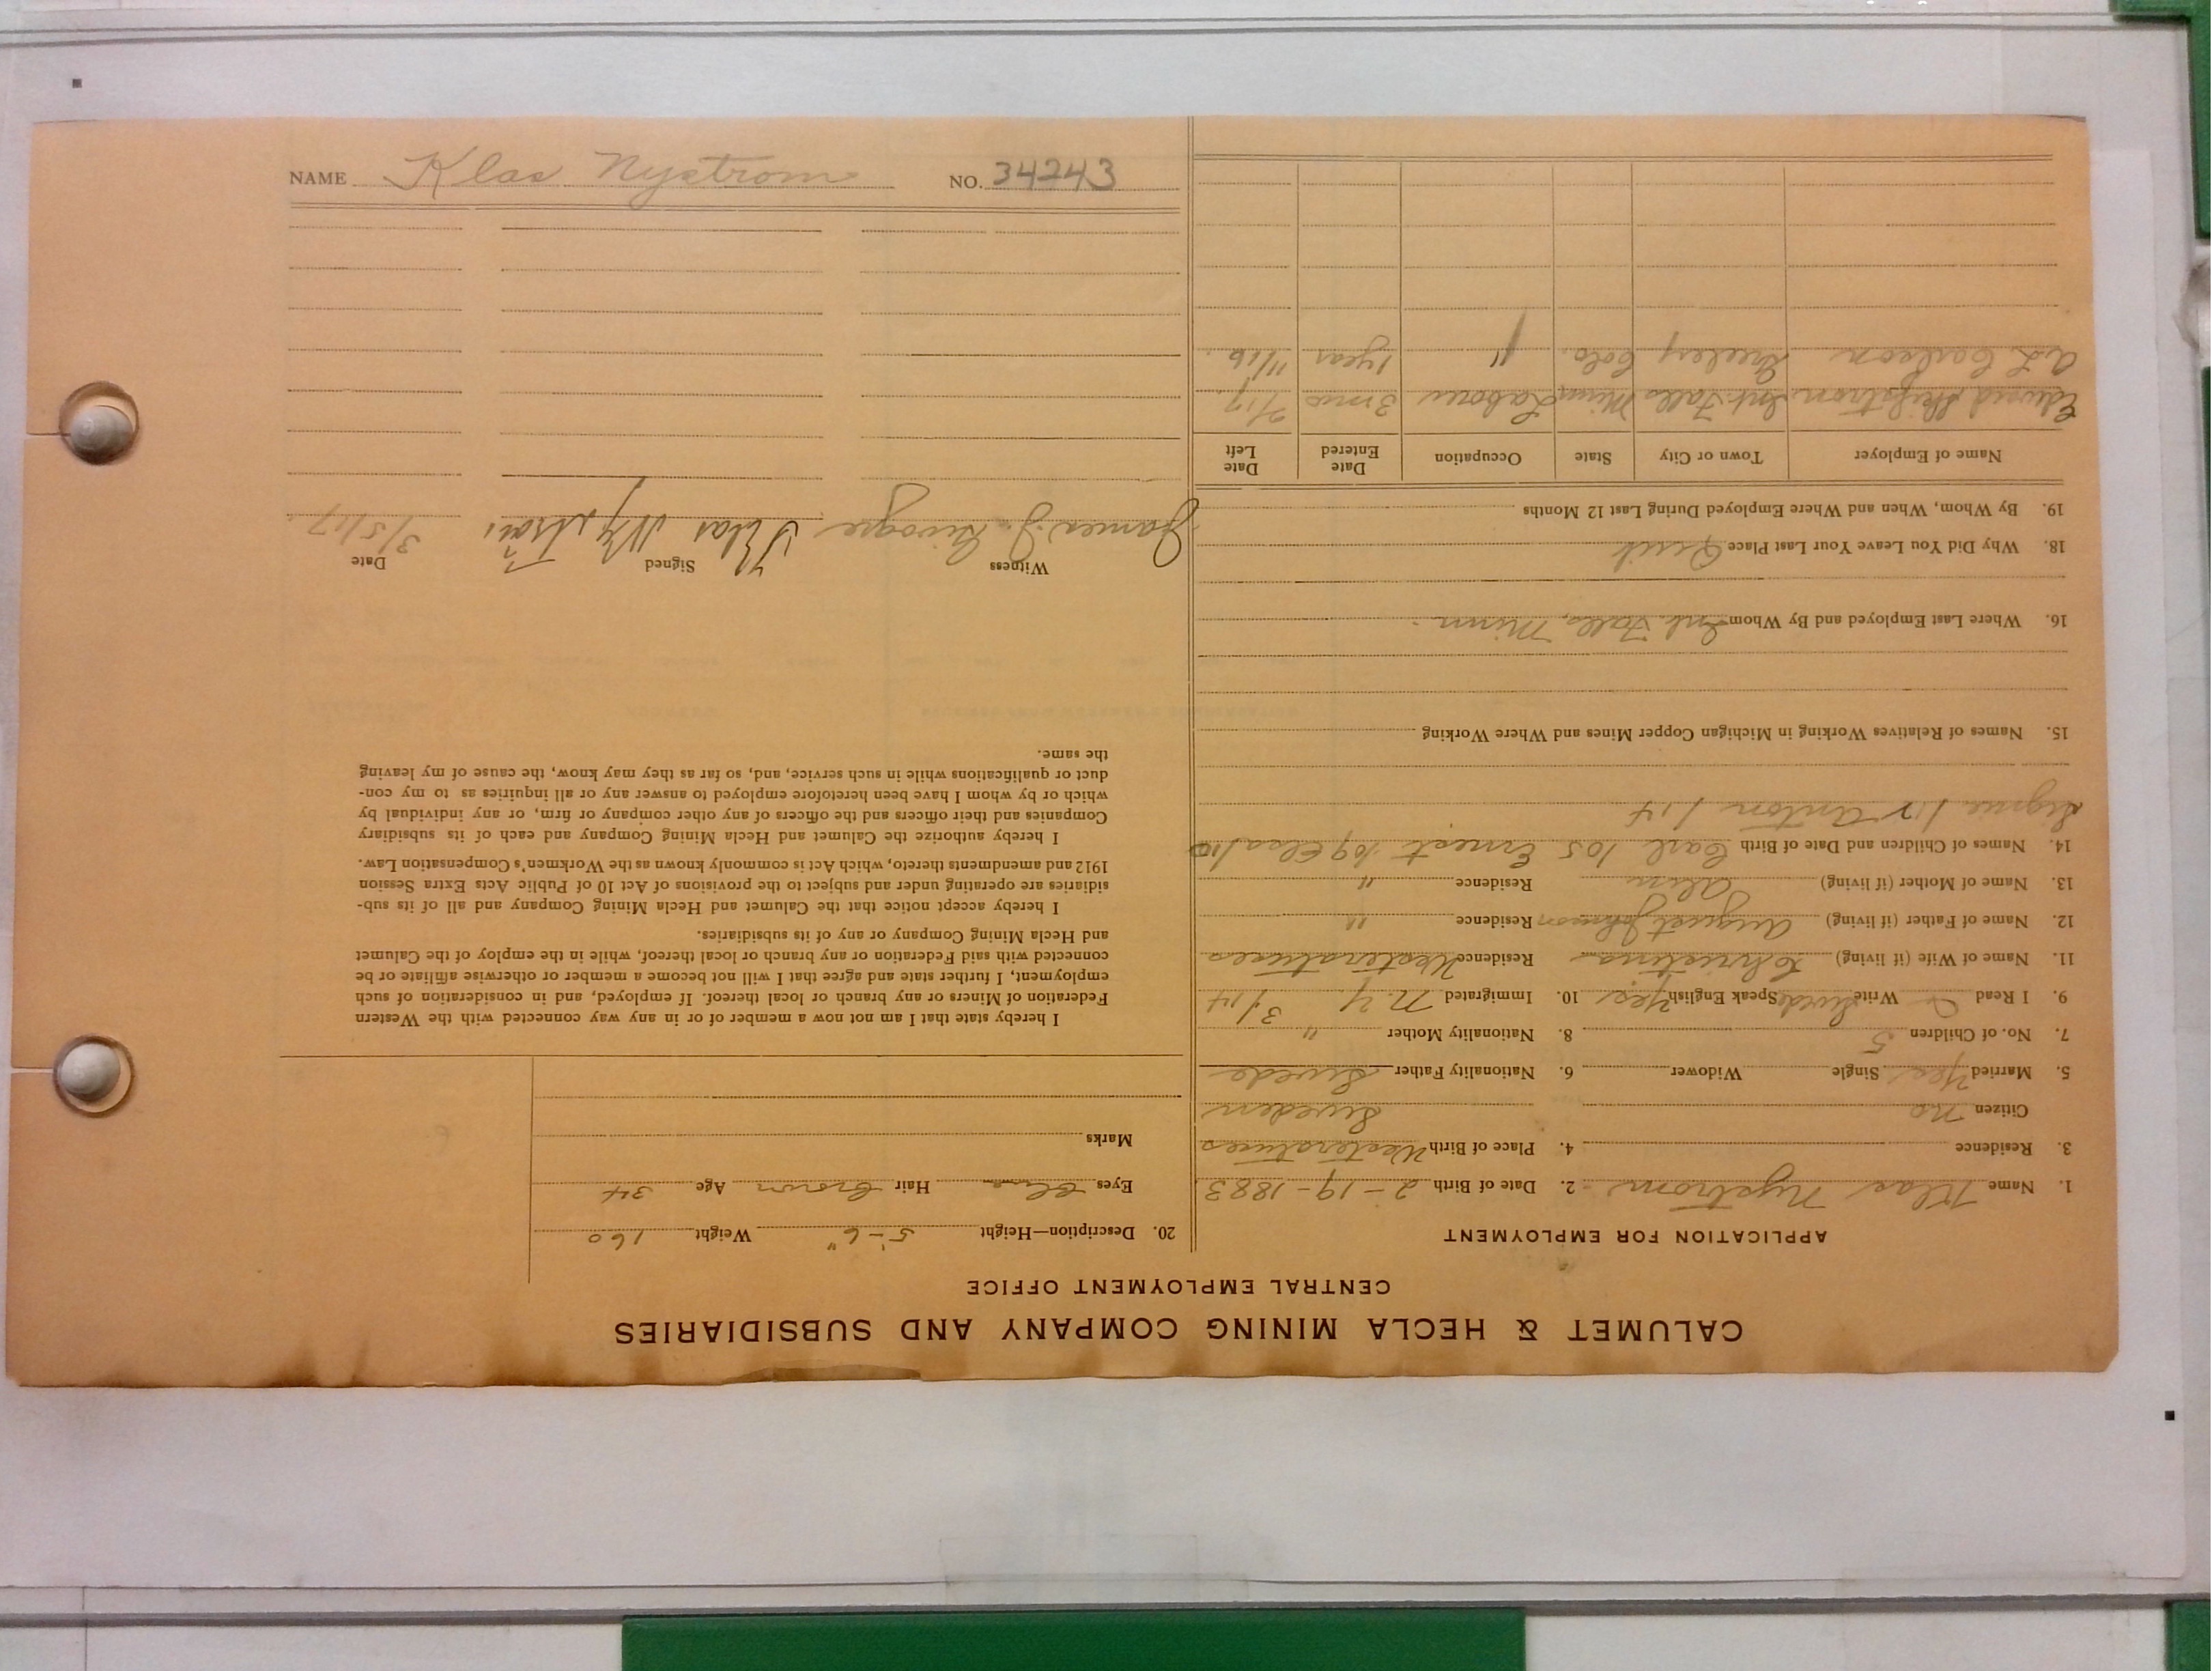 NAME Klas Nystrom NO. 34243
CALUMET & HECLA MINING COMPANY AND SUBSIDIARIES
CENTRAL EMPLOYMENT OFFICE
APPLICATION FOR EMPLOYMENT
1. Name Klas Nystrom 2. Date of Birth 2-19-1883
3. Residence 4. Place of Birth
Citizen no Sweden
5. Married Yes Single Widower 6. Nationality Father Swede
7. No. of Children 5 8. Nationality Mother "
9. I Read Write Swede Speak English Yes 10. Immigrated N.Y. 3/14
11. Name of Wife (if living) Christina Residence
12. Name of Father (if living) August Johnson Residence "
13. Name of Mother (if living) Residence "
14. Names of Children and Date of Birth Carl 105 Ernest 109 Clas 110
Signe 112 Anton 114
15. Names of Relatives Working in Michigan Copper Mines and Where Working
16. Where Last Employed and By Whom Int. Falls, Minn.
18. Why Did You Leave Your Last Place Quit
19. By Whom, When and Where Employed During Last 12 Months
Name of Employer Town or City State Occupation Date Entered Date Left
Edward Int. Falls Minn Laborer 3 mos 2/17
A L Carlson Greeley Colo. " 1 year 11/16
20. Description—Height 5'-6" Weight 160
Eyes Blue Hair Brown Age 34
Marks
I hereby state that I am not now a member of or in any way connected with the Western
Federation of Miners or any branch or local thereof. If employed, and in consideration of such
employment, I further state and agree that I will not become a member or otherwise affiliate or be
connected with said Federation or any branch or local thereof, while in the employ of the Calumet
and Hecla Mining Company or any of its subsidiaries.
I hereby accept notice that the Calumet and Hecla Mining Company and all of its sub-
sidiaries are operating under and subject to the provisions of Act 10 of Public Acts Extra Session
1912 and amendments thereto, which Act is commonly known as the Workmen's Compensation Law.
I hereby authorize the Calumet and Hecla Mining Company and each of its subsidiary
Companies and their officers and the officers of any other company or firm, or any individual by
which or by whom I have been heretofore employed to answer any or all inquiries as to my con-
duct or qualifications while in such service, and, so far as they may know, the cause of my leaving
the same.
Witness Signed Date
James J. Klas Nystrom 3/5/17